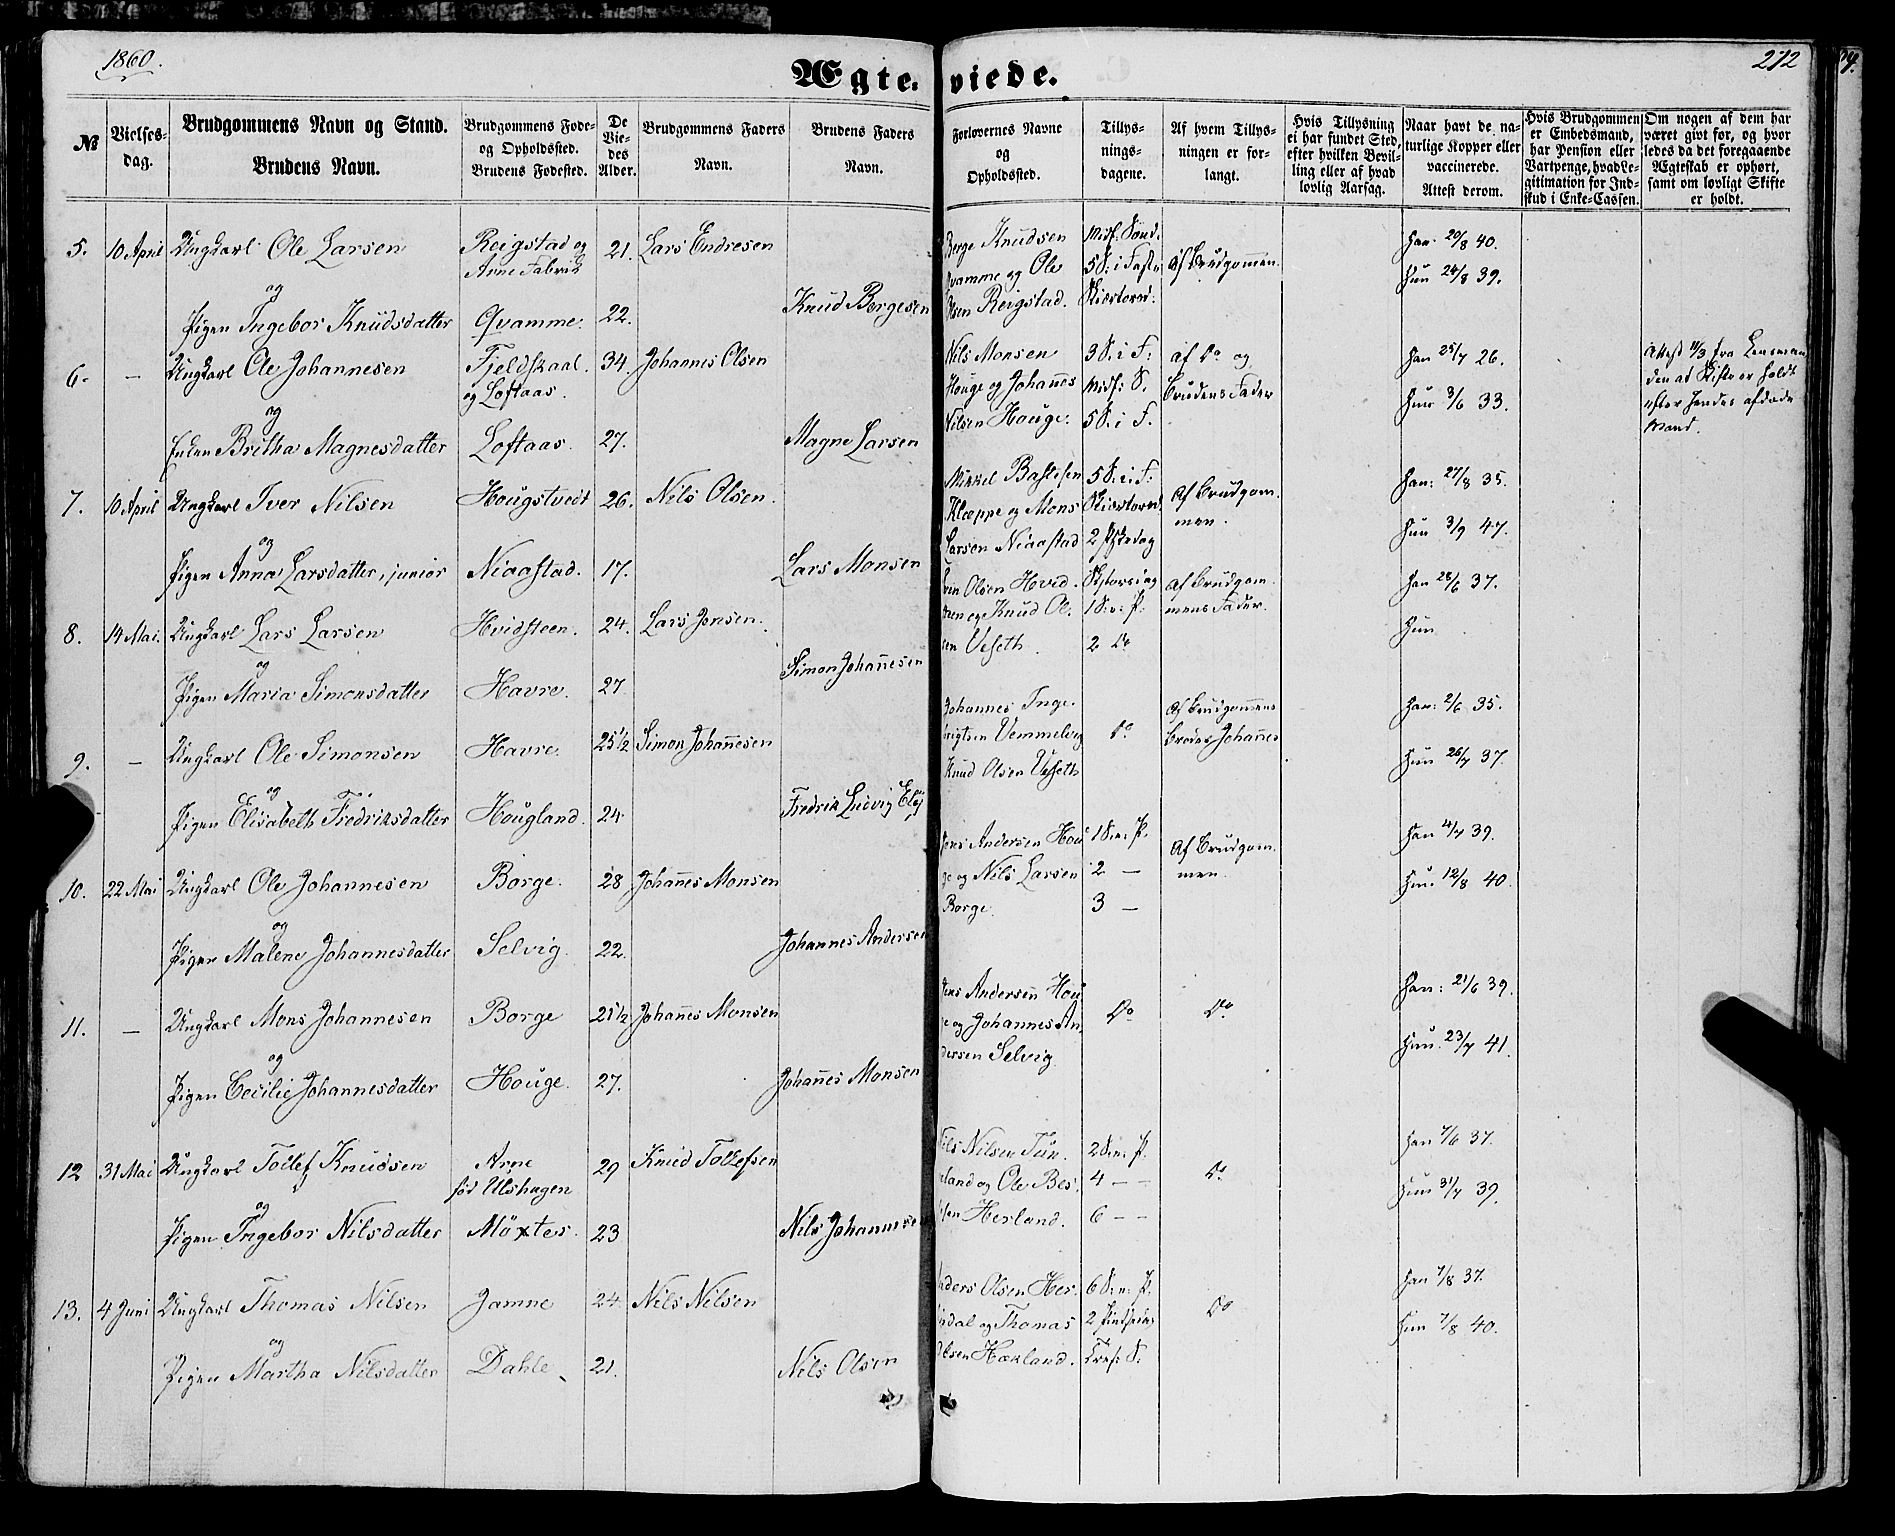 1860.
212
Ægteviede.
№
Vielses-dag.
Brudgommens Navn og Stand.
Brudens Navn.
Brudgommens Føde-
og Opholdssted.
Brudens Fødested.
De
Vie-
des
Alder.
Brudgommens Faders
Navn.
Brudens Faders
Navn.
Forlovernes Navne
og
Opholdssted.
Tillys-
nings-
dagene.
Af hvem Tillys-
ningen er for-
langt.
Hvis Tillysning
ei har fundet Sted,
efter hvilken Bevil-
ling eller af hvad
lovlig Aarsag.
Naar havt de na-
turlige Kopper eller
vaccinerede.
Attest derom.
Hvis Brudgommen
er Embedsmand,
har Pension eller
Vartpenge, hvad Le-
gitimation for Ind-
skud i Enke-Cassen.
Om nogen af dem har
været givt før, og hvor
ledes da det foregaaende
Ægteskab er ophørt,
samt om lovligt Skifte
er holdt.
5. 10 April Ungkarl Ole Larsen Reigstad og 21. Lars Endresen
Arne Fabrik
og
Pigen Ingebor Knudsdatter Qvamme. 22. Knud Bergesen
Berge Knudsen Midf: Sønd:
Qvamme og Ole 5 S: i Faste Af Brudgommen.
Olsen Reigstad. Skjærtorsd:
Han 20/8 40.
Hun 24/8 39.
6. — Ungkarl Ole Johannesen Fjeldskaal 34. Johannes Olsen
og Loftaas.
og
Enken Britha Magnesdatter Loftaas. 27. Magne Larsen
Nils Monsen 3 S. i F: af Do og
Houge og Johanes Midf: S. Brudens Fader
Nilsen Houge. 5 S. i F.
Han 25/7 26.
Hun 3/6 33.
Attest 11/3 fra Lensman
den at Skifte er holdt
efter hendes afdøde
Mand.
7. 10 April Ungkarl Iver Nilsen Hougstvedt 26. Nils Olsen.
og
Pigen Anna Larsdatter, junior Niaastad. 17. Lars Monsen
Mikkel Bastesen 5 S. i F:
Klæppe og Mons Skiærtorsd. Af Brudgom-
Larsen Niaastad 2 Paaskedag men.
Han: 27/8 35.
Hun 3/9 47.
8. 14 Mai. Ungkarl Lars Larsen Hvidsteen. 24. Lars Jensen.
og
Pigen Maria Simonsdatter Havre. 27. Simon Johanesen
Olsen Hvid- Af Brudgom-
steen og Knud Ol- 1 S: e: P. mens Fader.
sen Veseth. 2 Do
Han 28/6 37.
Hun
9. — Ungkarl Ole Simonsen Havre. 25 1/2 Simon Johanesen
og
Pigen Elisabeth Fredriksdatter Hougland. 24. Fredrik Ludvig
Johannes Inge- Af Brudgommens
brigtsen Vemmelvig Do Broder Johanes
Knud Olsen Veseth
Han: 2/6 35.
Hun 26/7 37.
10. 22 Mai Ungkarl Ole Johannesen Borge. 28 Johanes Monsen
og
Pigen Malene Johannesdatter Selvig. 22. Johannes Andersen
Jens Andersen Hou- 1 S: e: P. Af Brudgom-
ge og Nils Larsen 2 — men.
Borge. 3 —
Han 4/7 39.
Hun 12/8 40.
11. — Ungkarl Mons Johannesen Borge 25 1/2 Johanes Monsen
og
Pigen Cecilie Johannesdatter Houge. 27. Johanes Monsen
Jens Andersen Hou-
ge og Johannes An- Do Do
dersen Selvig.
Han: 21/6 39.
Hun 23/7 41.
12 31 Mai Ungkarl Tollef Knudsen Arne 29 Knud Tollefsen
fød Ulshagen
og
Pigen Ingebor Nilsdatter Møxter. 23 Nils Johannesen
Nils Nilsen Tun- 2 S. e: P.
eland og Ole 4 — — Do
Herland. 6 — —
Han 7/6 37.
Hun 31/7 39.
13. 4 Juni Ungkarl Thomas Nilsen Jamne 24 Nils Nilsen
og
Pigen Martha Nilsdatter Dahle 21. Nils Olsen
Anders Olsen Her- 6 S. e: P.
dal og Thomas 2 Pintsedag Do
Olsen Hækland. Tref: S.
Han 7/8 37.
Hun 7/8 40.